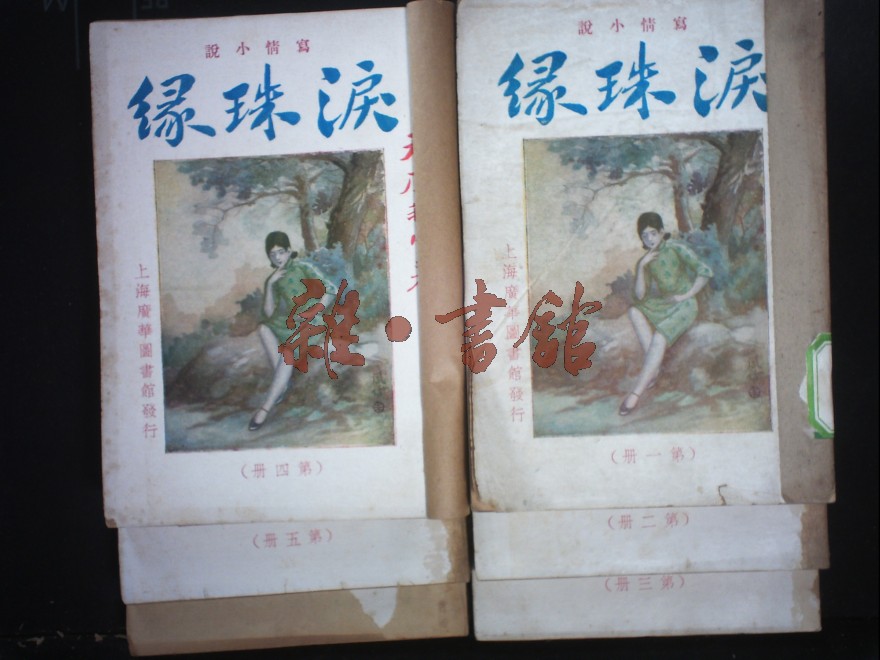 寫情小說
淚珠緣
上海廣華圖書館發行
(第四册)
(第五册)
寫情小說
淚珠緣
上海廣華圖書館發行
(第一册)
(第二册)
(第三册)
雜·書館